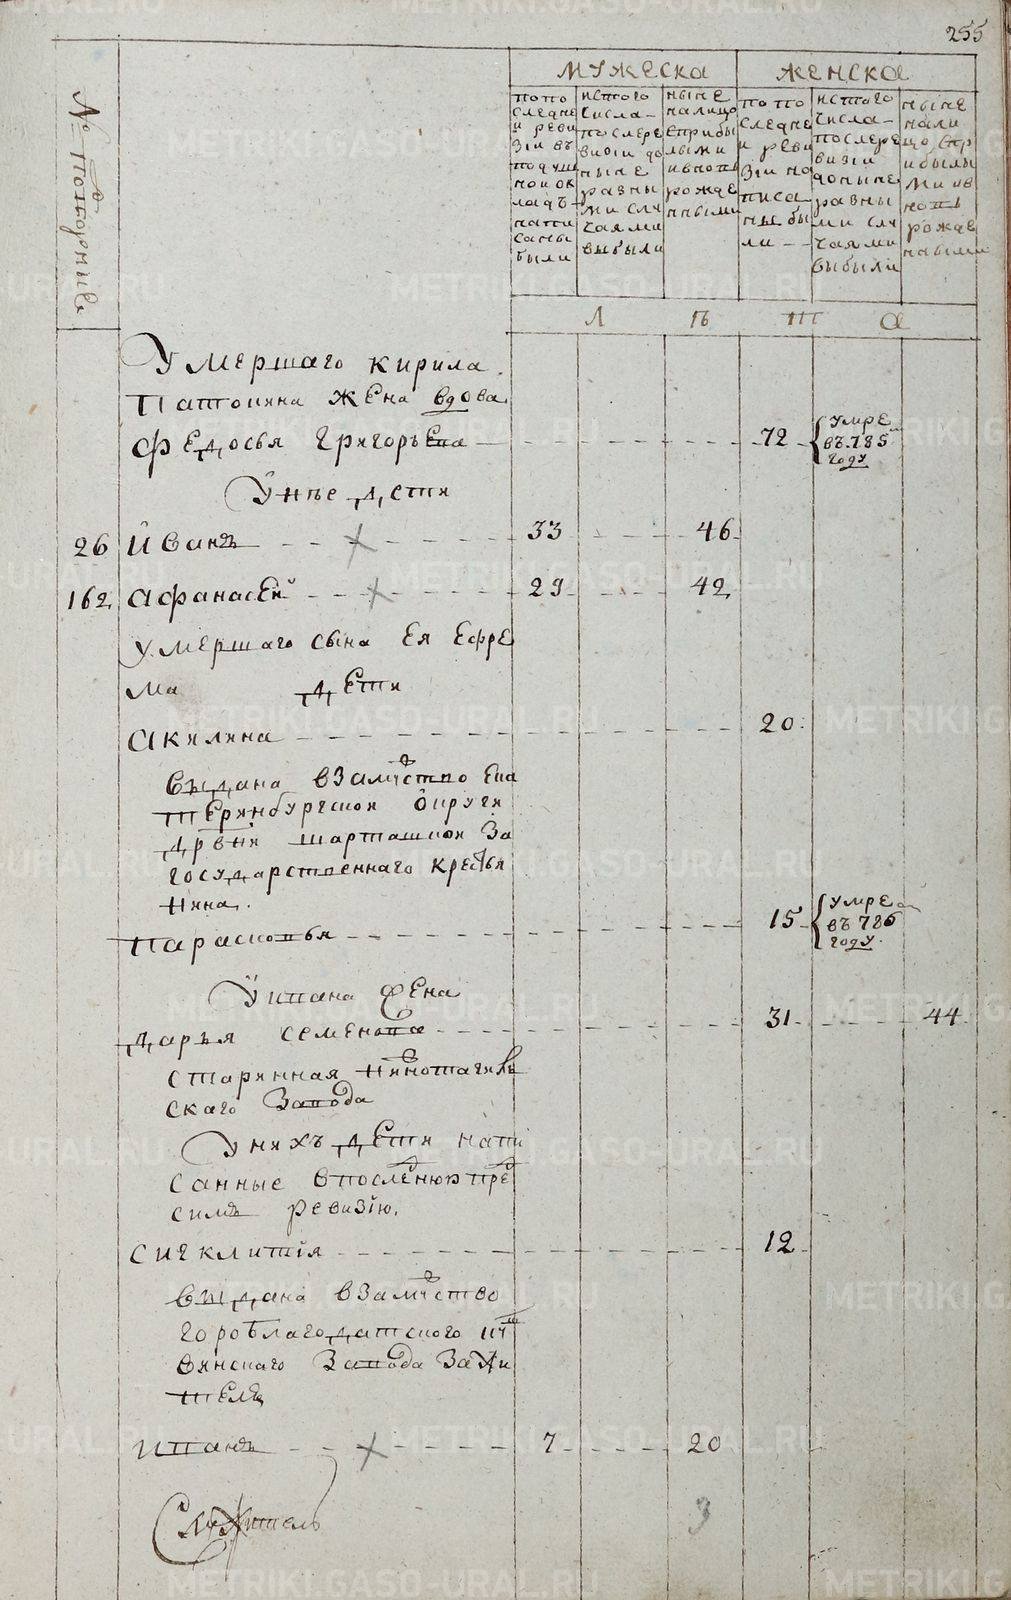 255
МУЖЕСКА
ЖЕНСКА
№ повторные
попо
следне
й реви
зіи въ
подуш
ной ок
ладъ
напи
саны
были
истого
числа
послере
визіи до
ныне
разны
ми слу
чаями
выбыли
ныне
налицо
сприбы
лыми
ивновь
рожде
нными
попо
следне
й реви
зіи на
писа
ны бы
ли
истого
числа
послере
визіи
доныне
разны
ми слу
чаями
выбыли
ныне
нали
цо спр
ибылы
ми ив
новь
рожде
нными
Л Ѣ Т А
Умершаго кирила
жена вдова
Федосья григорьева 72 умре въ 785 году
Унее дети
26 Иванъ 33 46
162 Афанасей 29 42
умершаго сына ея ефре
ма дети
Акилина 20
выдана взамуство ека
теринбургской округи
дрвни шарташской за
государственнаго крестья
нина.
Парасковья 15 умре въ 786 году
Уивана жена
дарья семенова 31 44
старинная нижнотагиль
скаго завода
Унихъ дети напи
санные впоследнюю пре
симъ ревизію.
сигклитія 12
выдана взамуство
гороблагодатского
винскаго завода зажи
теля
иванъ 7 20
Служитель
3
METRIKI.GASO-URAL.RU